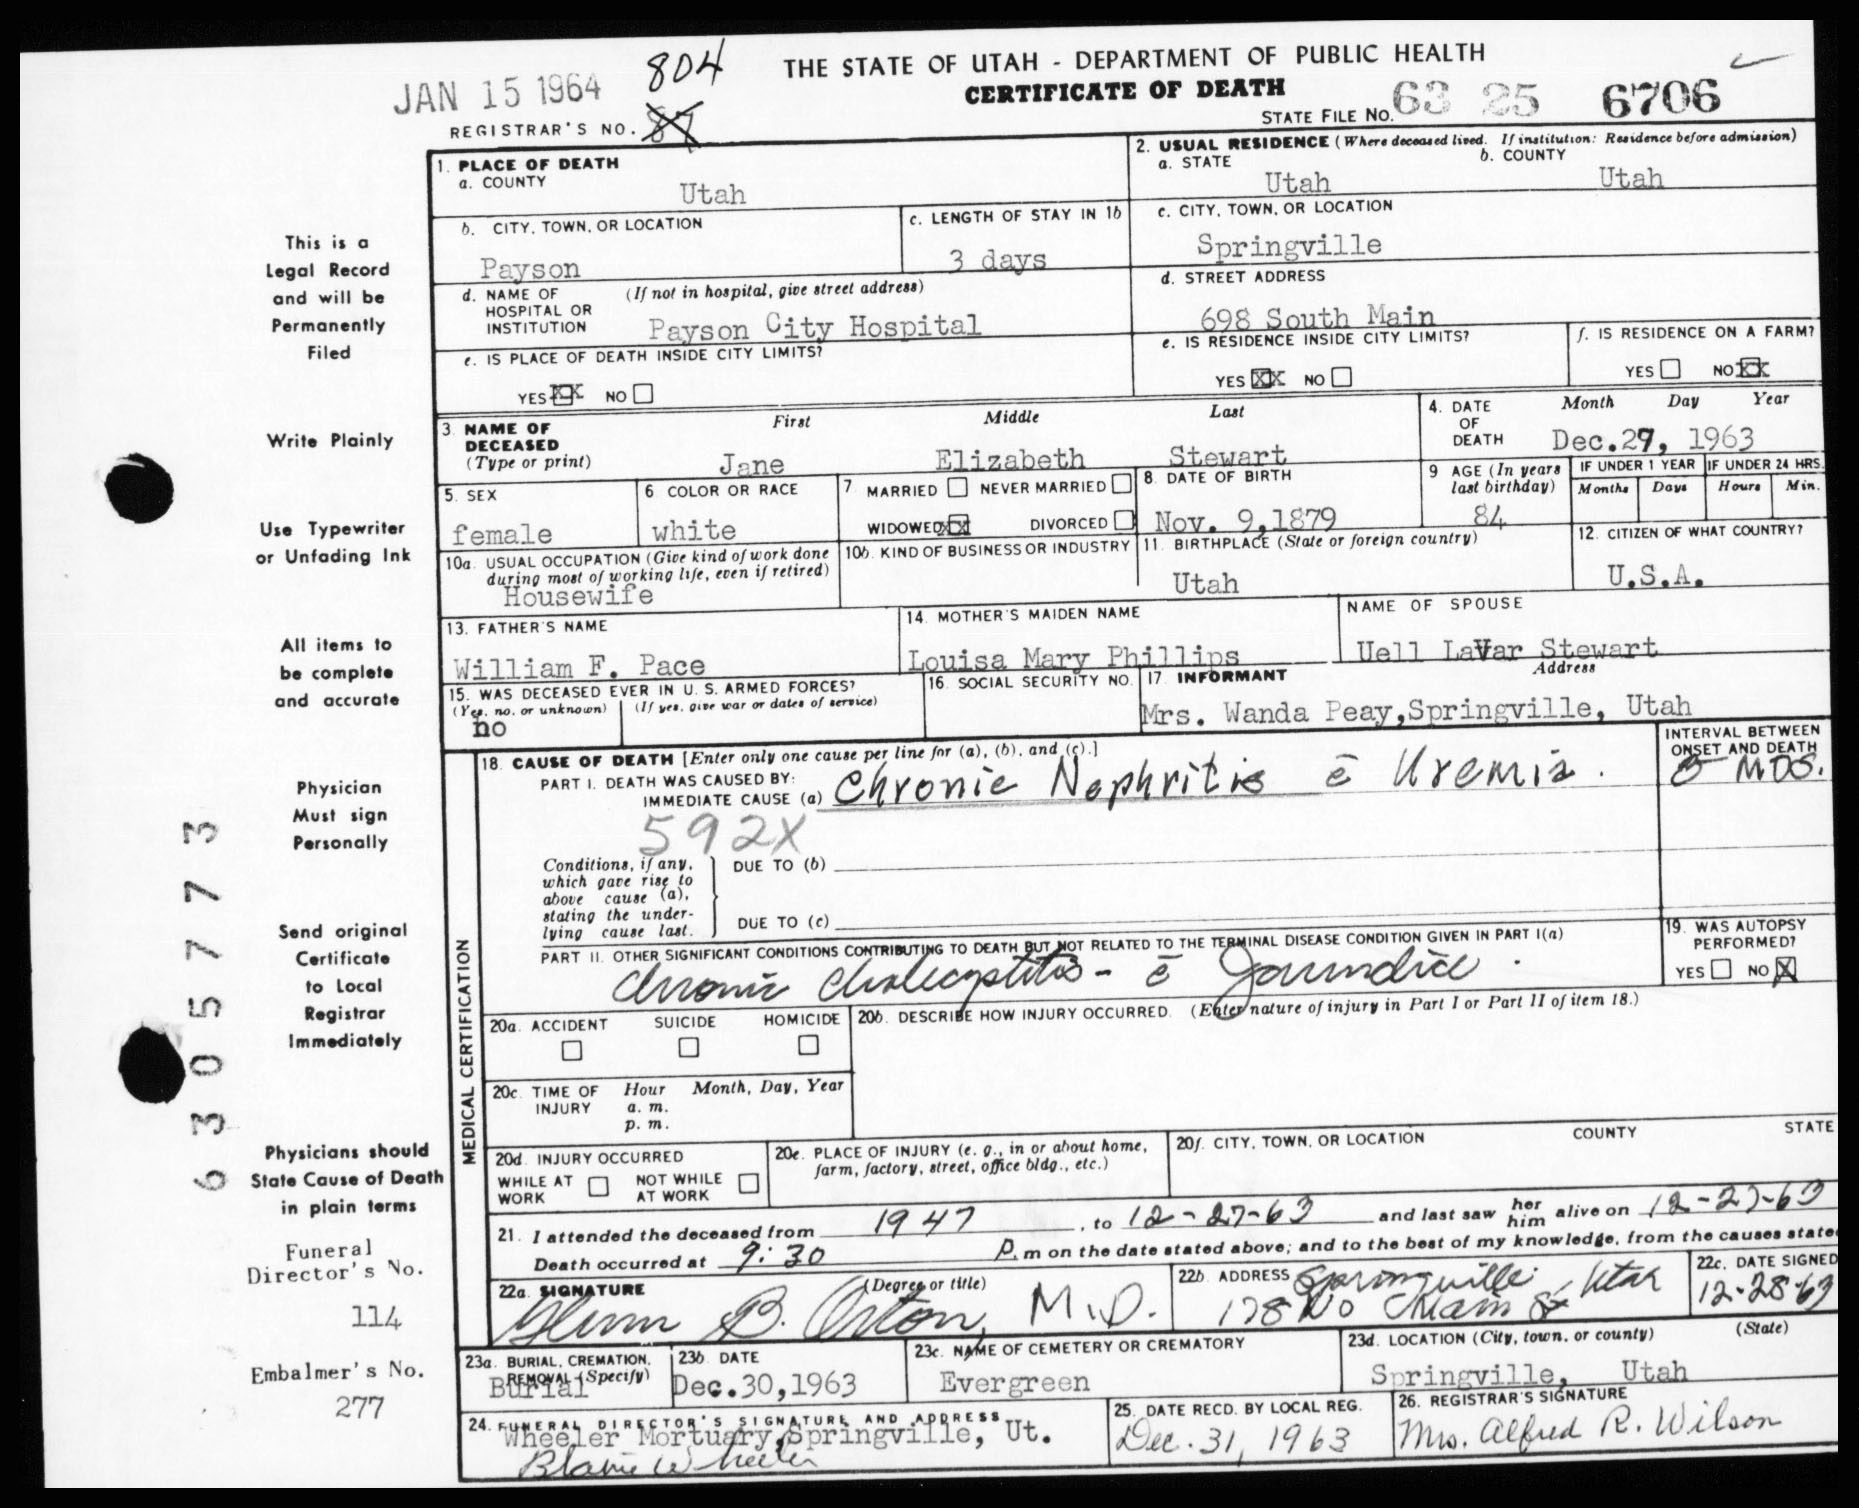 JAN 15 1964
804
THE STATE OF UTAH - DEPARTMENT OF PUBLIC HEALTH
CERTIFICATE OF DEATH
REGISTRAR'S NO. 87
STATE FILE NO. 63 25 6706
This is a
Legal Record
and will be
Permanently
Filed
Write Plainly
Use Typewriter
or Unfading Ink
All items to
be complete
and accurate
Physician
Must sign
Personally
Send original
Certificate
to Local
Registrar
Immediately
Physicians should
State Cause of Death
in plain terms
Funeral
Director's No.
114
Embalmer's No.
277
6305773
1. PLACE OF DEATH
a. COUNTY
Utah
2. USUAL RESIDENCE (Where deceased lived. If institution: Residence before admission)
a. STATE
Utah
b. COUNTY
Utah
b. CITY, TOWN, OR LOCATION
Payson
c. LENGTH OF STAY IN 1b
3 days
c. CITY, TOWN, OR LOCATION
Springville
d. NAME OF HOSPITAL OR INSTITUTION
(If not in hospital, give street address)
Payson City Hospital
d. STREET ADDRESS
698 South Main
e. IS PLACE OF DEATH INSIDE CITY LIMITS?
YES XX NO
e. IS RESIDENCE INSIDE CITY LIMITS?
YES XX NO
f. IS RESIDENCE ON A FARM?
YES NO XX
3. NAME OF DECEASED
(Type or print)
First Middle Last
Jane Elizabeth Stewart
4. DATE OF DEATH
Month Day Year
Dec.27, 1963
5. SEX
female
6. COLOR OR RACE
white
7. MARRIED NEVER MARRIED
WIDOWED XX DIVORCED
8. DATE OF BIRTH
Nov. 9,1879
9 AGE (In years last birthday)
84
IF UNDER 1 YEAR
Months Days
IF UNDER 24 HRS.
Hours Min.
10a. USUAL OCCUPATION (Give kind of work done during most of working life, even if retired)
Housewife
10b. KIND OF BUSINESS OR INDUSTRY
11. BIRTHPLACE (State or foreign country)
Utah
12. CITIZEN OF WHAT COUNTRY?
U.S.A.
13. FATHER'S NAME
William F. Pace
14. MOTHER'S MAIDEN NAME
Louisa Mary Phillips
NAME OF SPOUSE
Uell LaVar Stewart
15. WAS DECEASED EVER IN U. S. ARMED FORCES?
(Yes, no, or unknown) (If yes, give war or dates of service)
no
16. SOCIAL SECURITY NO.
17. INFORMANT Address
Mrs. Wanda Peay,Springville, Utah
MEDICAL CERTIFICATION
18. CAUSE OF DEATH [Enter only one cause per line for (a), (b), and (c).]
INTERVAL BETWEEN ONSET AND DEATH
PART I. DEATH WAS CAUSED BY:
IMMEDIATE CAUSE (a) Chronic Nephritis c̄ Uremia.
MOS.
592X
Conditions, if any, which gave rise to above cause (a), stating the underlying cause last.
DUE TO (b)
DUE TO (c)
PART II. OTHER SIGNIFICANT CONDITIONS CONTRIBUTING TO DEATH BUT NOT RELATED TO THE TERMINAL DISEASE CONDITION GIVEN IN PART I(a)
chronic cholecystitis - c̄ Jaundice.
19. WAS AUTOPSY PERFORMED?
YES NO X
20a. ACCIDENT SUICIDE HOMICIDE
20b. DESCRIBE HOW INJURY OCCURRED. (Enter nature of injury in Part I or Part II of item 18.)
20c. TIME OF INJURY
Hour Month, Day, Year
a. m.
p. m.
20d. INJURY OCCURRED
WHILE AT WORK NOT WHILE AT WORK
20e. PLACE OF INJURY (e. g., in or about home, farm, factory, street, office bldg., etc.)
20f. CITY, TOWN, OR LOCATION COUNTY STATE
21. I attended the deceased from 1947, to 12-27-63 and last saw her him alive on 12-27-63
Death occurred at 9:30 P.m on the date stated above; and to the best of my knowledge, from the causes state
22a. SIGNATURE (Degree or title)
Glenn B. Orton, M.D.
22b. ADDRESS Springville, Utah
178 No Main St
22c. DATE SIGNED
12-28-63
23a. BURIAL, CREMATION, REMOVAL (Specify)
Burial
23b. DATE
Dec.30,1963
23c. NAME OF CEMETERY OR CREMATORY
Evergreen
23d. LOCATION (City, town, or county) (State)
Springville, Utah
24. FUNERAL DIRECTOR'S SIGNATURE AND ADDRESS
Wheeler Mortuary,Springville, Ut.
Blaine Wheeler
25. DATE RECD. BY LOCAL REG.
Dec. 31, 1963
26. REGISTRAR'S SIGNATURE
Mrs. Alfred R. Wilson